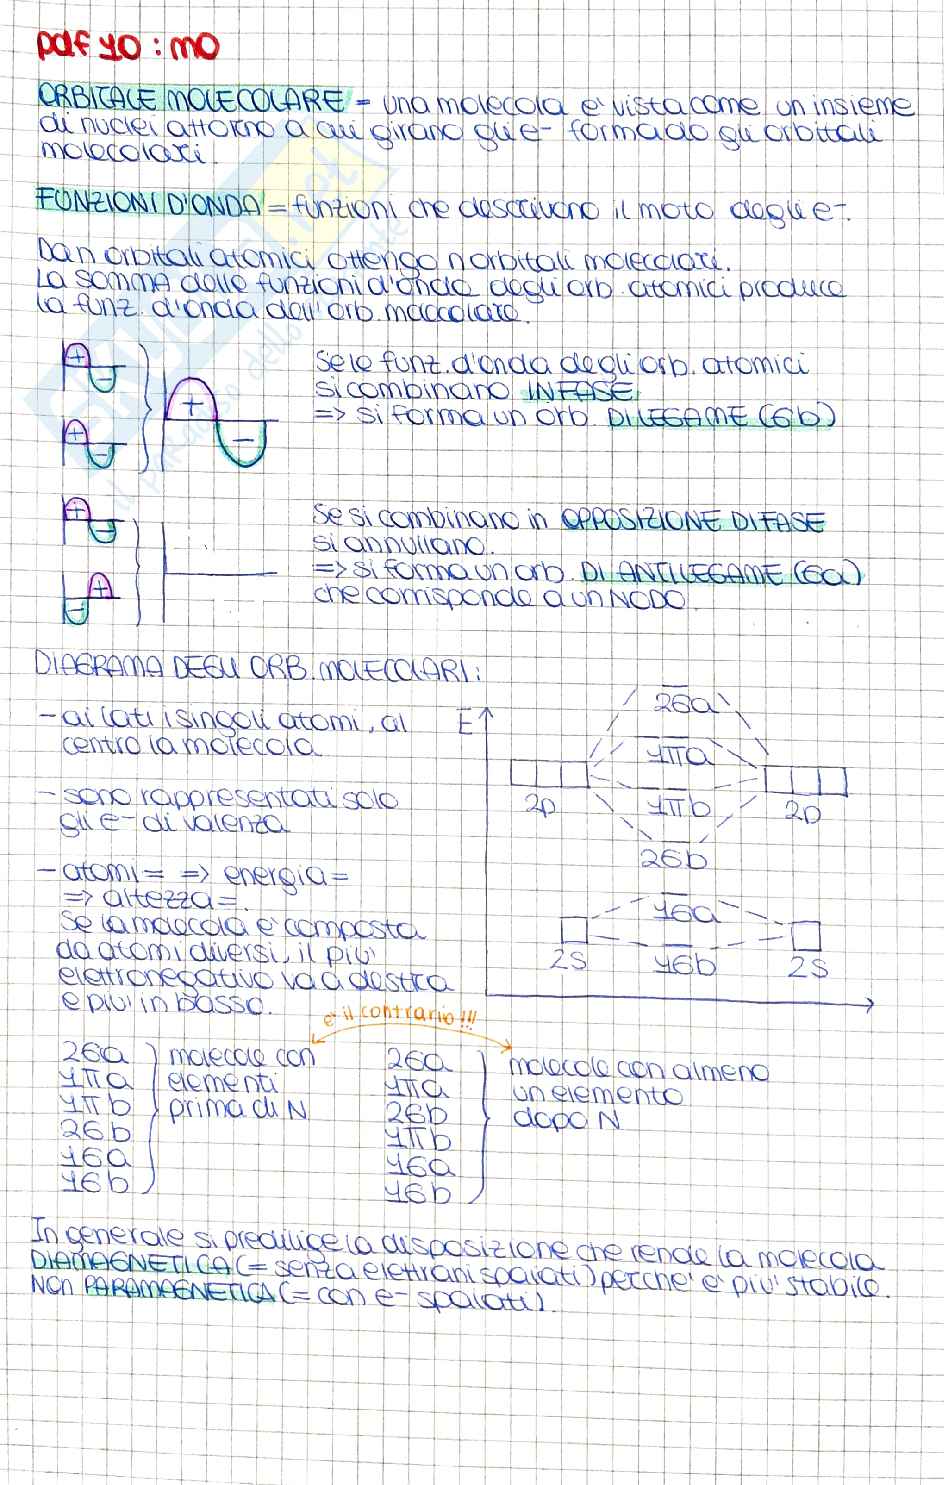 pdf 10 : MO
ORBITALE MOLECOLARE = una molecola è vista come un insieme
di nuclei attorno a cui girano gli e- formado gli orbitali
molecolari.
FUNZIONI D'ONDA = funzioni che descrivono il moto degli e-.
Da n orbitali atomici ottengo n orbitali molecolari.
La somma delle funzioni d'onda degli orb. atomici produce
la funz. d'onda dell'orb. maccolare.
+
-
+
-
+
-
Se le funz. d'onda degli orb. atomici
si combinano IN FASE
=> si forma un orb. DI LEGAME (σb)
+
-
+
-
Se si combinano in OPPOSIZIONE DI FASE
si annullano.
=> si forma un orb. DI ANTILEGAME (σa)
che corrisponde a un NODO.
DIAGRAMA DEGLI ORB. MOLECOLARI:
- ai lati i singoli atomi, al
centro la molecola
- sono rappresentati solo
gli e- di valenza
- atomi = => energia =
=> altezza =.
Se la molecola è composta
da atomi diversi, il più
elettronegativo va a destra
e più in basso.
E
2σa
1πa
2p
1πb
2p
2σb
1σa
2s
1σb
2s
è il contrario!!!
2σa
1πa
1πb
2σb
1σa
1σb
molecole con
elementi
prima di N
2σa
1πa
2σb
1πb
1σa
1σb
molecole con almeno
un elemento
dopo N
In generale si predilige la disposizione che rende la molecola
DIAMAGNETICA (= senza elettrani spaiati) perchè è più stabile.
NON PARAMAGNETICA (= con e- spaiati).